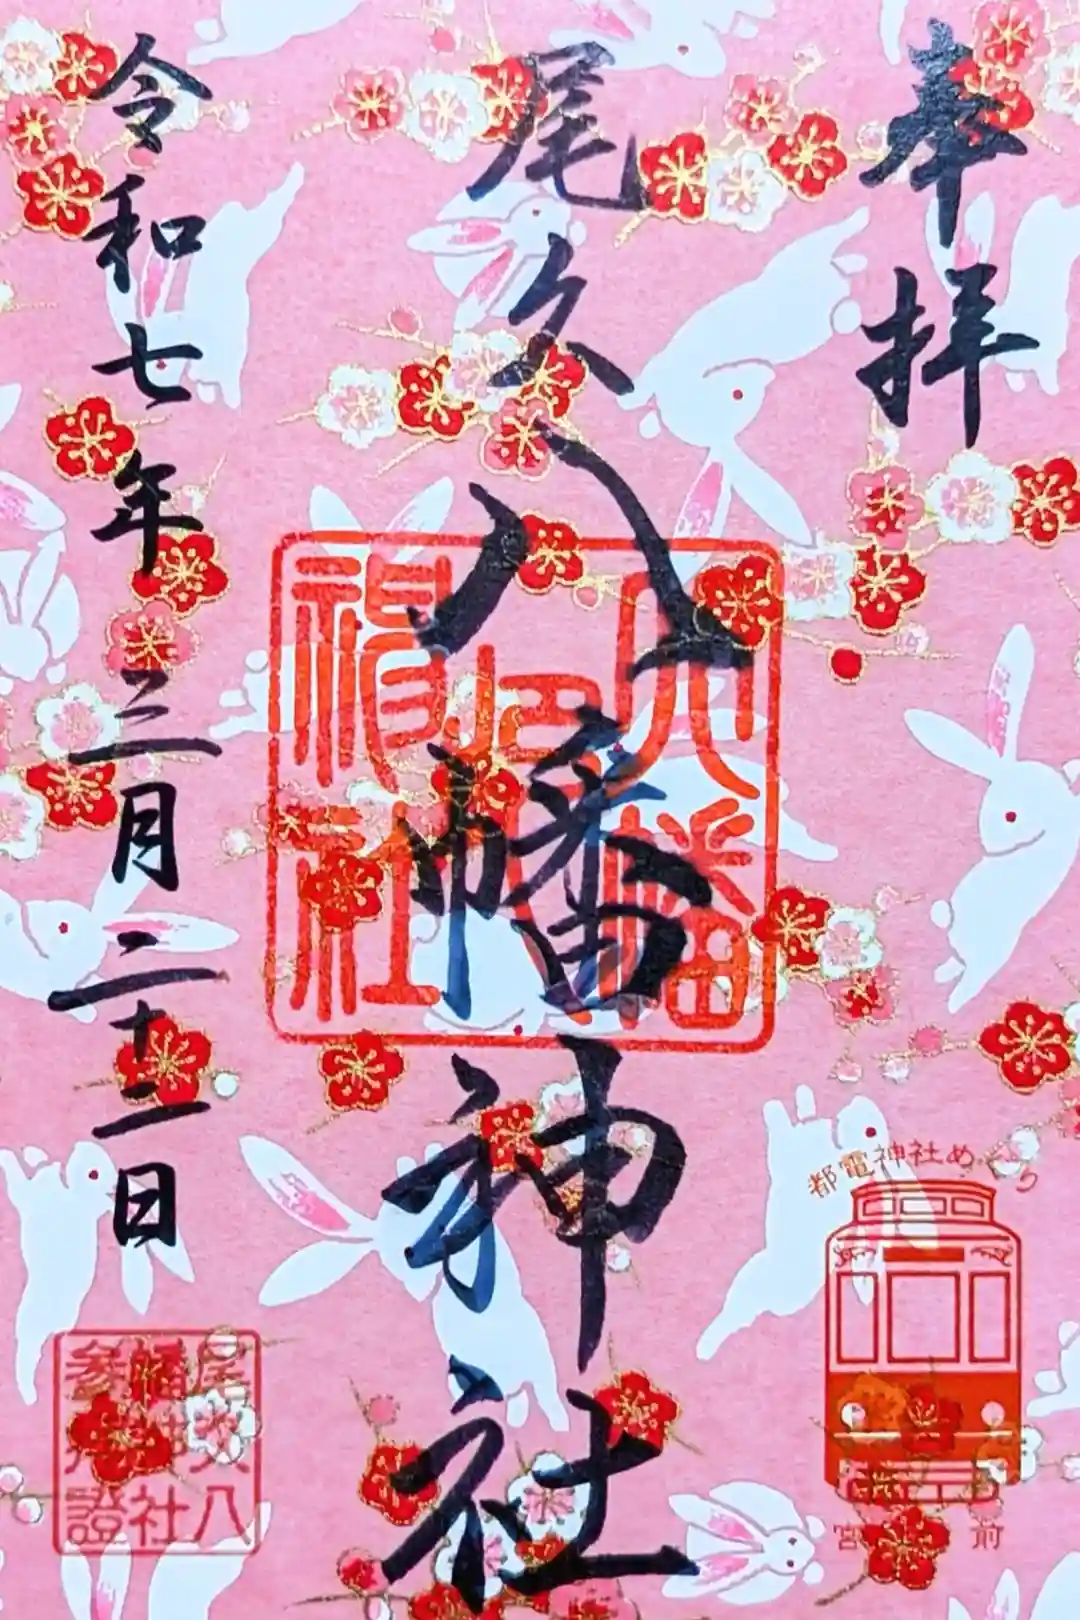 奉拝
尾久八幡神社
令和七年三月二十二日
八幡
神社
都電神社めぐり
宮 前
尾久八
幡神社
参拝證